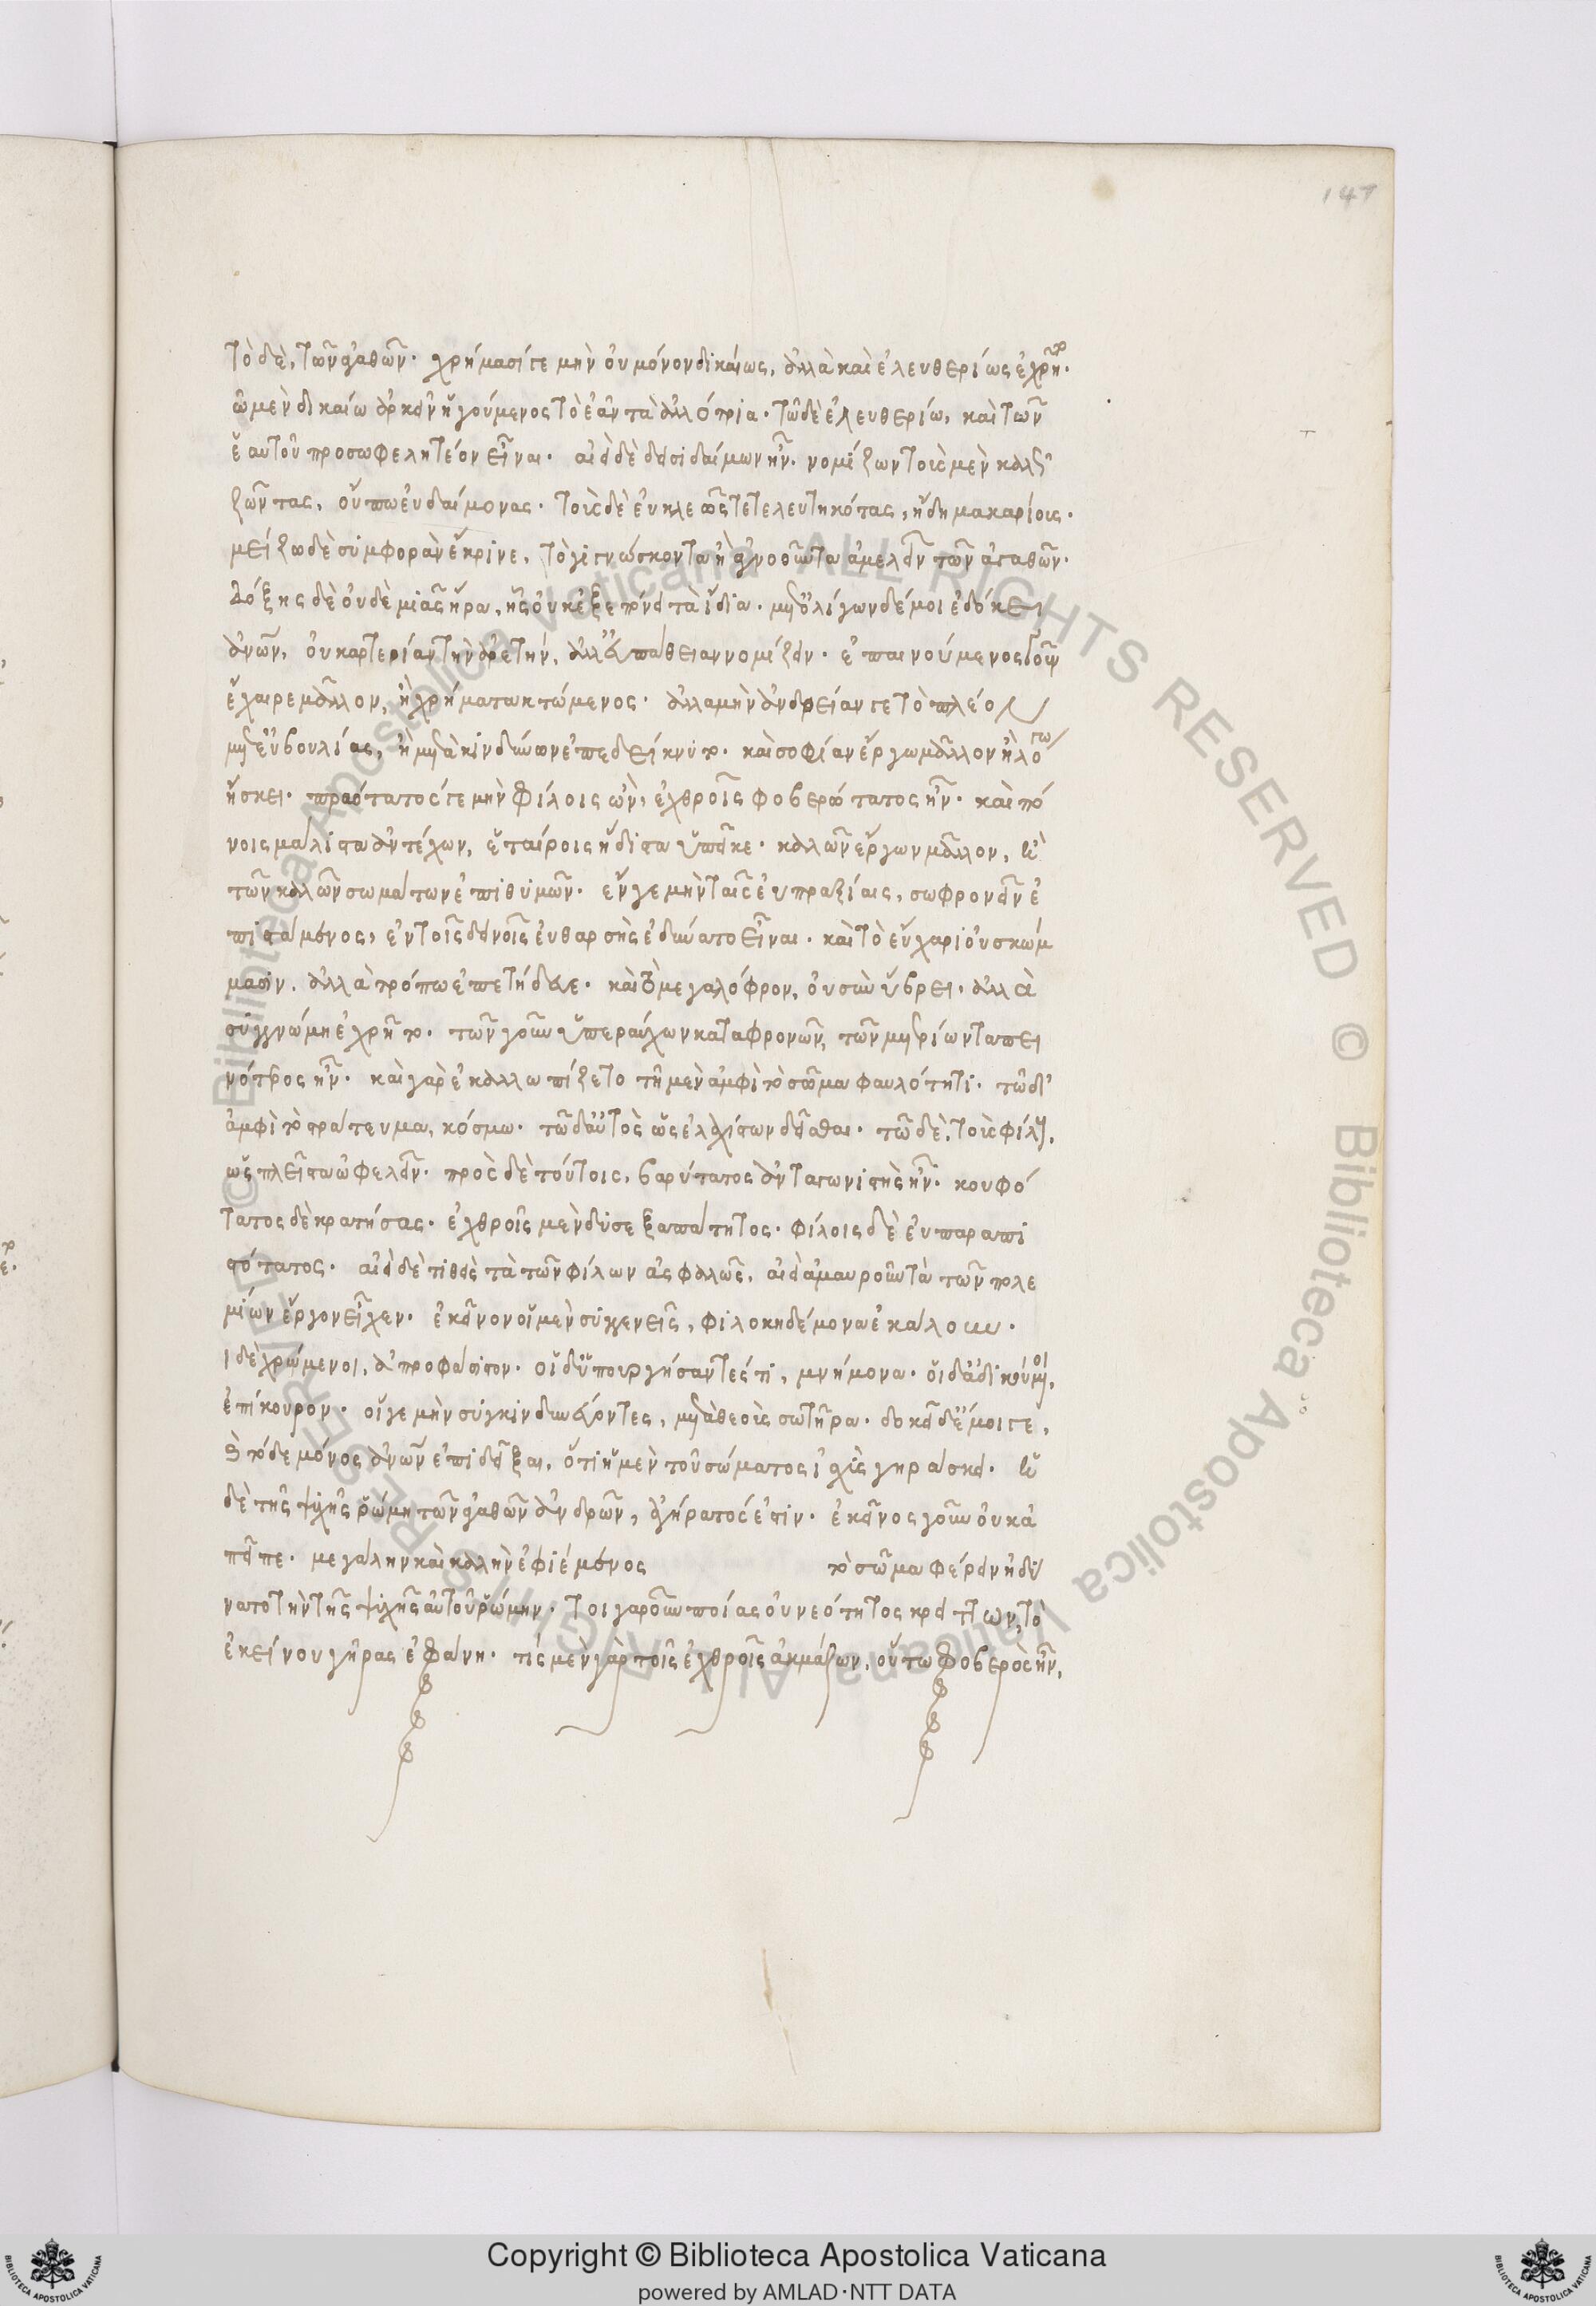 147
τὸ δὲ, τῶν ἀγαθῶν. χρήμασί γε μὴν οὐ μόνον δικαίως, ἀλλὰ καὶ ἐλευθερίως ἐχρῆτο.
ῶ μὲν δικαίω ἀρκεῖν ἡγούμενος τὸ ἐᾶν τὰ ἀλλότρια. τῶ δὲ ἐλευθερίω, καὶ τῶν
ἑαυτοῦ προσωφελητέον εἶναι. ἀεὶ δὲ δεισιδαίμων ἦν. νομίζων τοὺς μὲν καλῶς
ζῶντας, οὔπω εὐδαίμονας. τοὺς δὲ εὐκλεῶς τετελευτηκότας, ἤδη μακαρίους.
μείζω δὲ συμφορὰν ἔκρινε, τὸ γιγνώσκοντα ἢ ἀγνοοῦντα ἀμελεῖν τῶν ἀγαθῶν.
δόξης δὲ οὐδὲ μιᾶς ἤρα, ἧς οὐκ ἐξεπόνει τὰ ἴδια. μετ' ὀλίγων δέ μοι ἐδόκει
ἀνθρώπων, οὐ καρτερίαν τὴν ἀρετὴν, ἀλλ' εὐπάθειαν νομίζειν. ἐπαινούμενος γοῦν
ἔχαιρε μᾶλλον, ἢ χρήματα κτώμενος. ἀλλὰ μὴν ἀνδρείαν γε τὸ πλέον
μετ' εὐβουλίας, ἢ μετὰ κινδύνων ἐπεδείκνυτο. καὶ σοφίαν ἔργω μᾶλλον ἢ λόγω
ἤσκει. πραότατός γε μὴν φίλοις ὢν, ἐχθροῖς φοβερώτατος ἦν. καὶ πό
νοις μάλιστα ἀντέχων, ἑταίροις ἥδιστα ὑπεῖκε. καλῶν ἔργων μᾶλλον, ἢ
τῶν καλῶν σωμάτων ἐπιθυμῶν. εὖ γε μὴν ταῖς εὐπραξίαις, σωφρονεῖν ἐ
πιστάμενος, ἐν τοῖς δεινοῖς εὐθαρσὴς ἐδύνατο εἶναι. καὶ τὸ εὔχαρι οὐ σκώμ
μασιν, ἀλλὰ τρόπω ἐπετήδευε. καὶ τὸ μεγαλόφρον, οὐ σὺν ὕβρει. ἀλλὰ
συγγνώμη ἐχρῆτο. τῶν γοῦν ὑπεραύχων καταφρονῶν, τῶν μετρίων ταπει
νότερος ἦν. καὶ γὰρ ἐκαλλωπίζετο τῆ μὲν ἀμφὶ τὸ σῶμα φαυλότητι. τῶ δ'
ἀμφὶ τὸ στράτευμα, κόσμω. τῶ δ' αὐτὸς ὡς ἐλαχίστων δεῖσθαι. τῶ δὲ, τοὺς φίλους,
ὡς πλεῖστα ὠφελεῖν. πρὸς δὲ τούτοις, βαρύτατος ἀνταγωνιστὴς ἦν. κουφό
τατος δὲ κρατήσας. ἐχθροῖς μὲν δυσεξαπάτητος. φίλοις δὲ εὐπαραπι
στότατος. ἀεὶ δὲ τιθεὶς τὰ τῶν φίλων ἀσφαλῶς, ἀεὶ ἀμαυροῦν τὰ τῶν πολε
μίων ἔργον εἶχεν. ἐκεῖνον οἱ μὲν συγγενεῖς, φιλοκηδέμονα ἐκάλουν.
ι δὲ χρώμενοι, ἀπροφάσιστον. οἱ δ' ὑπουργήσαντές τι, μνήμονα. οἱ δ' ἀδικούμενοι,
ἐπίκουρον. οἵ γε μὴν συγκινδυνεύοντες, μετὰ θεοὺς σωτῆρα. δοκεῖ δ' ἔμοιγε,
καὶ τόδε μόνος ἀνθρώπων ἐπιδεῖξαι, ὅτι ἡ μὲν τοῦ σώματος ἰσχὺς γηράσκει. ἡ
δὲ τῆς ψυχῆς ῥώμη τῶν ἀγαθῶν ἀνδρῶν, ἀγήρατός ἐστιν. ἐκεῖνος γοῦν οὐκ ἀ
πεῖπε. μεγάλην καὶ καλὴν ἐφιέμενος τὸ σῶμα φέρειν ἠδύ
νατο τὴν τῆς ψυχῆς αὐτοῦ ῥώμην. τοιγαροῦν ποίας οὐ νεότητος κρεῖττων, τὸ
ἐκείνου γῆρας ἐφάνη. τίς μὲν γὰρ τοῖς ἐχθροῖς ἀκμάζων, οὕτω φοβερὸς ἦν,
Copyright © Biblioteca Apostolica Vaticana
powered by AMLAD·NTT DATA
© Biblioteca Apostolica Vaticana ALL RIGHTS RESERVED © Biblioteca Apostolica Vaticana ALL RIGHTS RESERVED